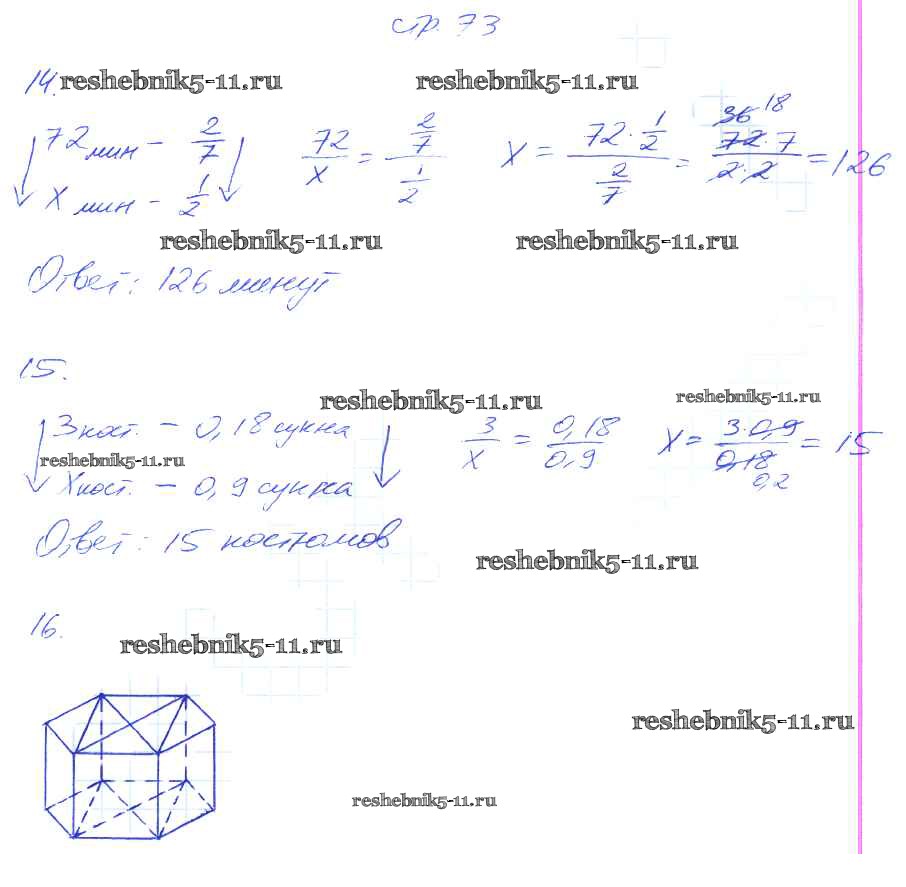 стр. 73
14. reshebnik5-11.ru reshebnik5-11.ru
72 мин - 2/7 72/x = 2/7 / 1/2 x = 72 · 1/2 / 2/7 = 36 18 72 · 7 / 2 · 2 = 126
x мин - 1/2
reshebnik5-11.ru reshebnik5-11.ru
Ответ: 126 минут
15.
reshebnik5-11.ru reshebnik5-11.ru
3 кост. - 0,18 сукна 3/x = 0,18/0,9 x = 3·0,9 / 0,18 0,2 = 15
reshebnik5-11.ru
x кост. - 0,9 сукна
Ответ: 15 костюмов
reshebnik5-11.ru
16.
reshebnik5-11.ru
reshebnik5-11.ru
reshebnik5-11.ru